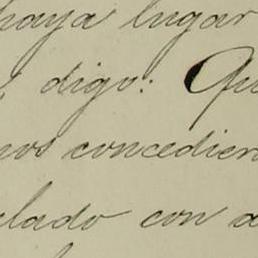 haya lugar
digo: Qu
nos concedier
lado con